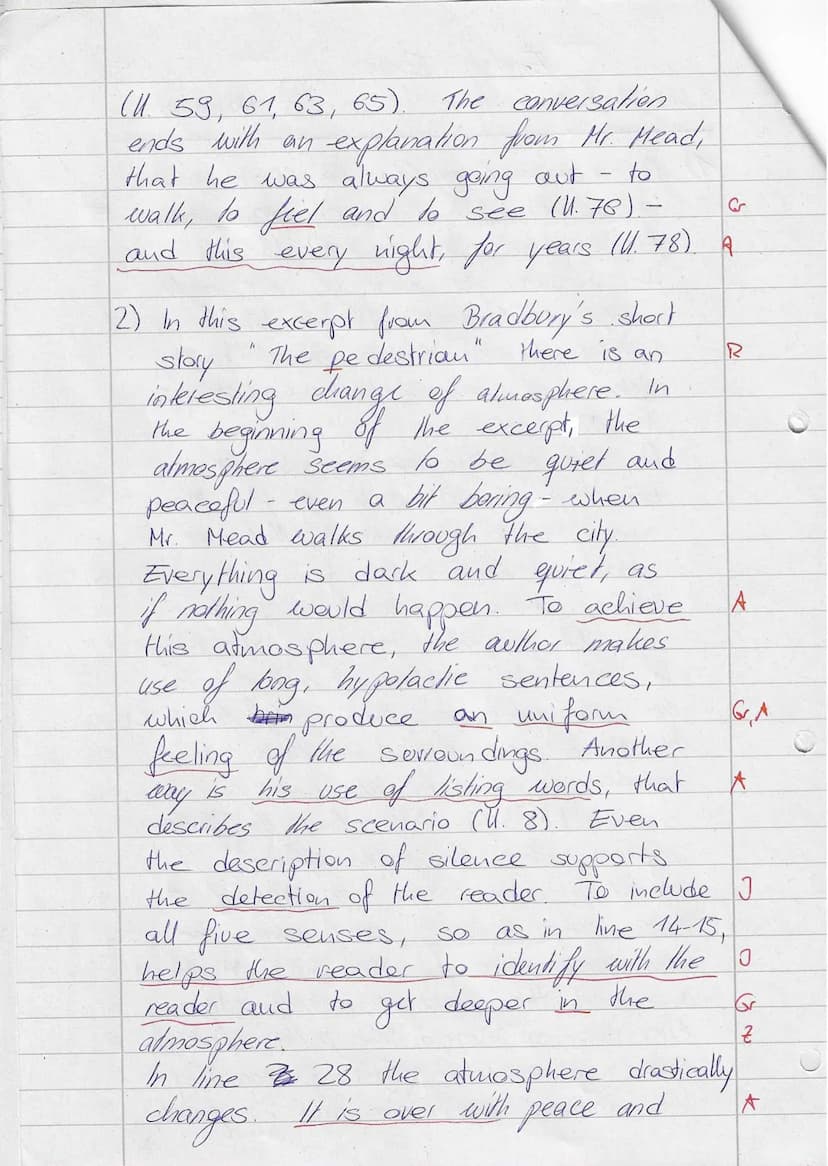 (ll. 59, 61, 63, 65). The conversation
ends with an explanation from Mr. Mead,
that he was always going out - to
walk, to fiel and to see (ll. 76) - Gr
and this every night, for years (ll. 78). A
2) In this excerpt from Bradbury's short
story "The pedestrian" there is an R
interesting change of atmosphere. In
the beginning of the excerpt, the
atmosphere seems to be quiet and
peaceful - even a bit boring - when
Mr. Mead walks through the city.
Everything is dark and quiet, as
if nothing would happen. To achieve A
this atmosphere, the author makes
use of long, hypotactic sentences,
which produce an uniform Gr, A
feeling of the sorroundings. Another
way is his use of listing words, that A
describes the scenario (ll. 8). Even
the description of silence supports
the detection of the reader. To include J
all five senses, so as in line 14-15,
helps the reader to identify with the J
reader and to get deeper in the Gr
atmosphere. Z
In line 28 the atmosphere drastically
changes. It is over with peace and A